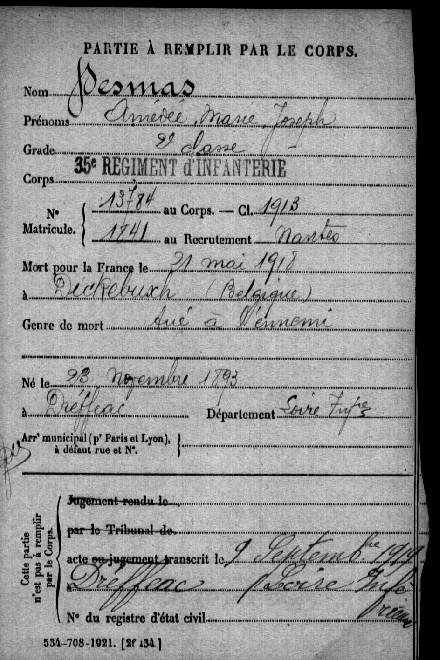 PARTIE À REMPLIR PAR LE CORPS.
Nom Desmas
Prénoms Amédée, Marie, Joseph
Grade 2e classe
Corps 35e RÉGIMENT d'INFANTERIE
N° Matricule. { 13784 au Corps. — Cl. 1913
1841 au Recrutement Nantes
Mort pour la France le 21 mai 1918
à Dickebusch (Belgique)
Genre de mort tué à l'ennemi
Né le 23 Novembre 1893
à Dréffeac Département Loire Infre
Arrt municipal (pr Paris et Lyon), à défaut rue et N°. }
Cette partie n'est pas à remplir par le Corps. {
Jugement rendu le
par le Tribunal de
acte ou jugement transcrit le 9 Septembre
à Dréffeac Loire Infre
N° du registre d'état civil
534-708-1921. [26434]